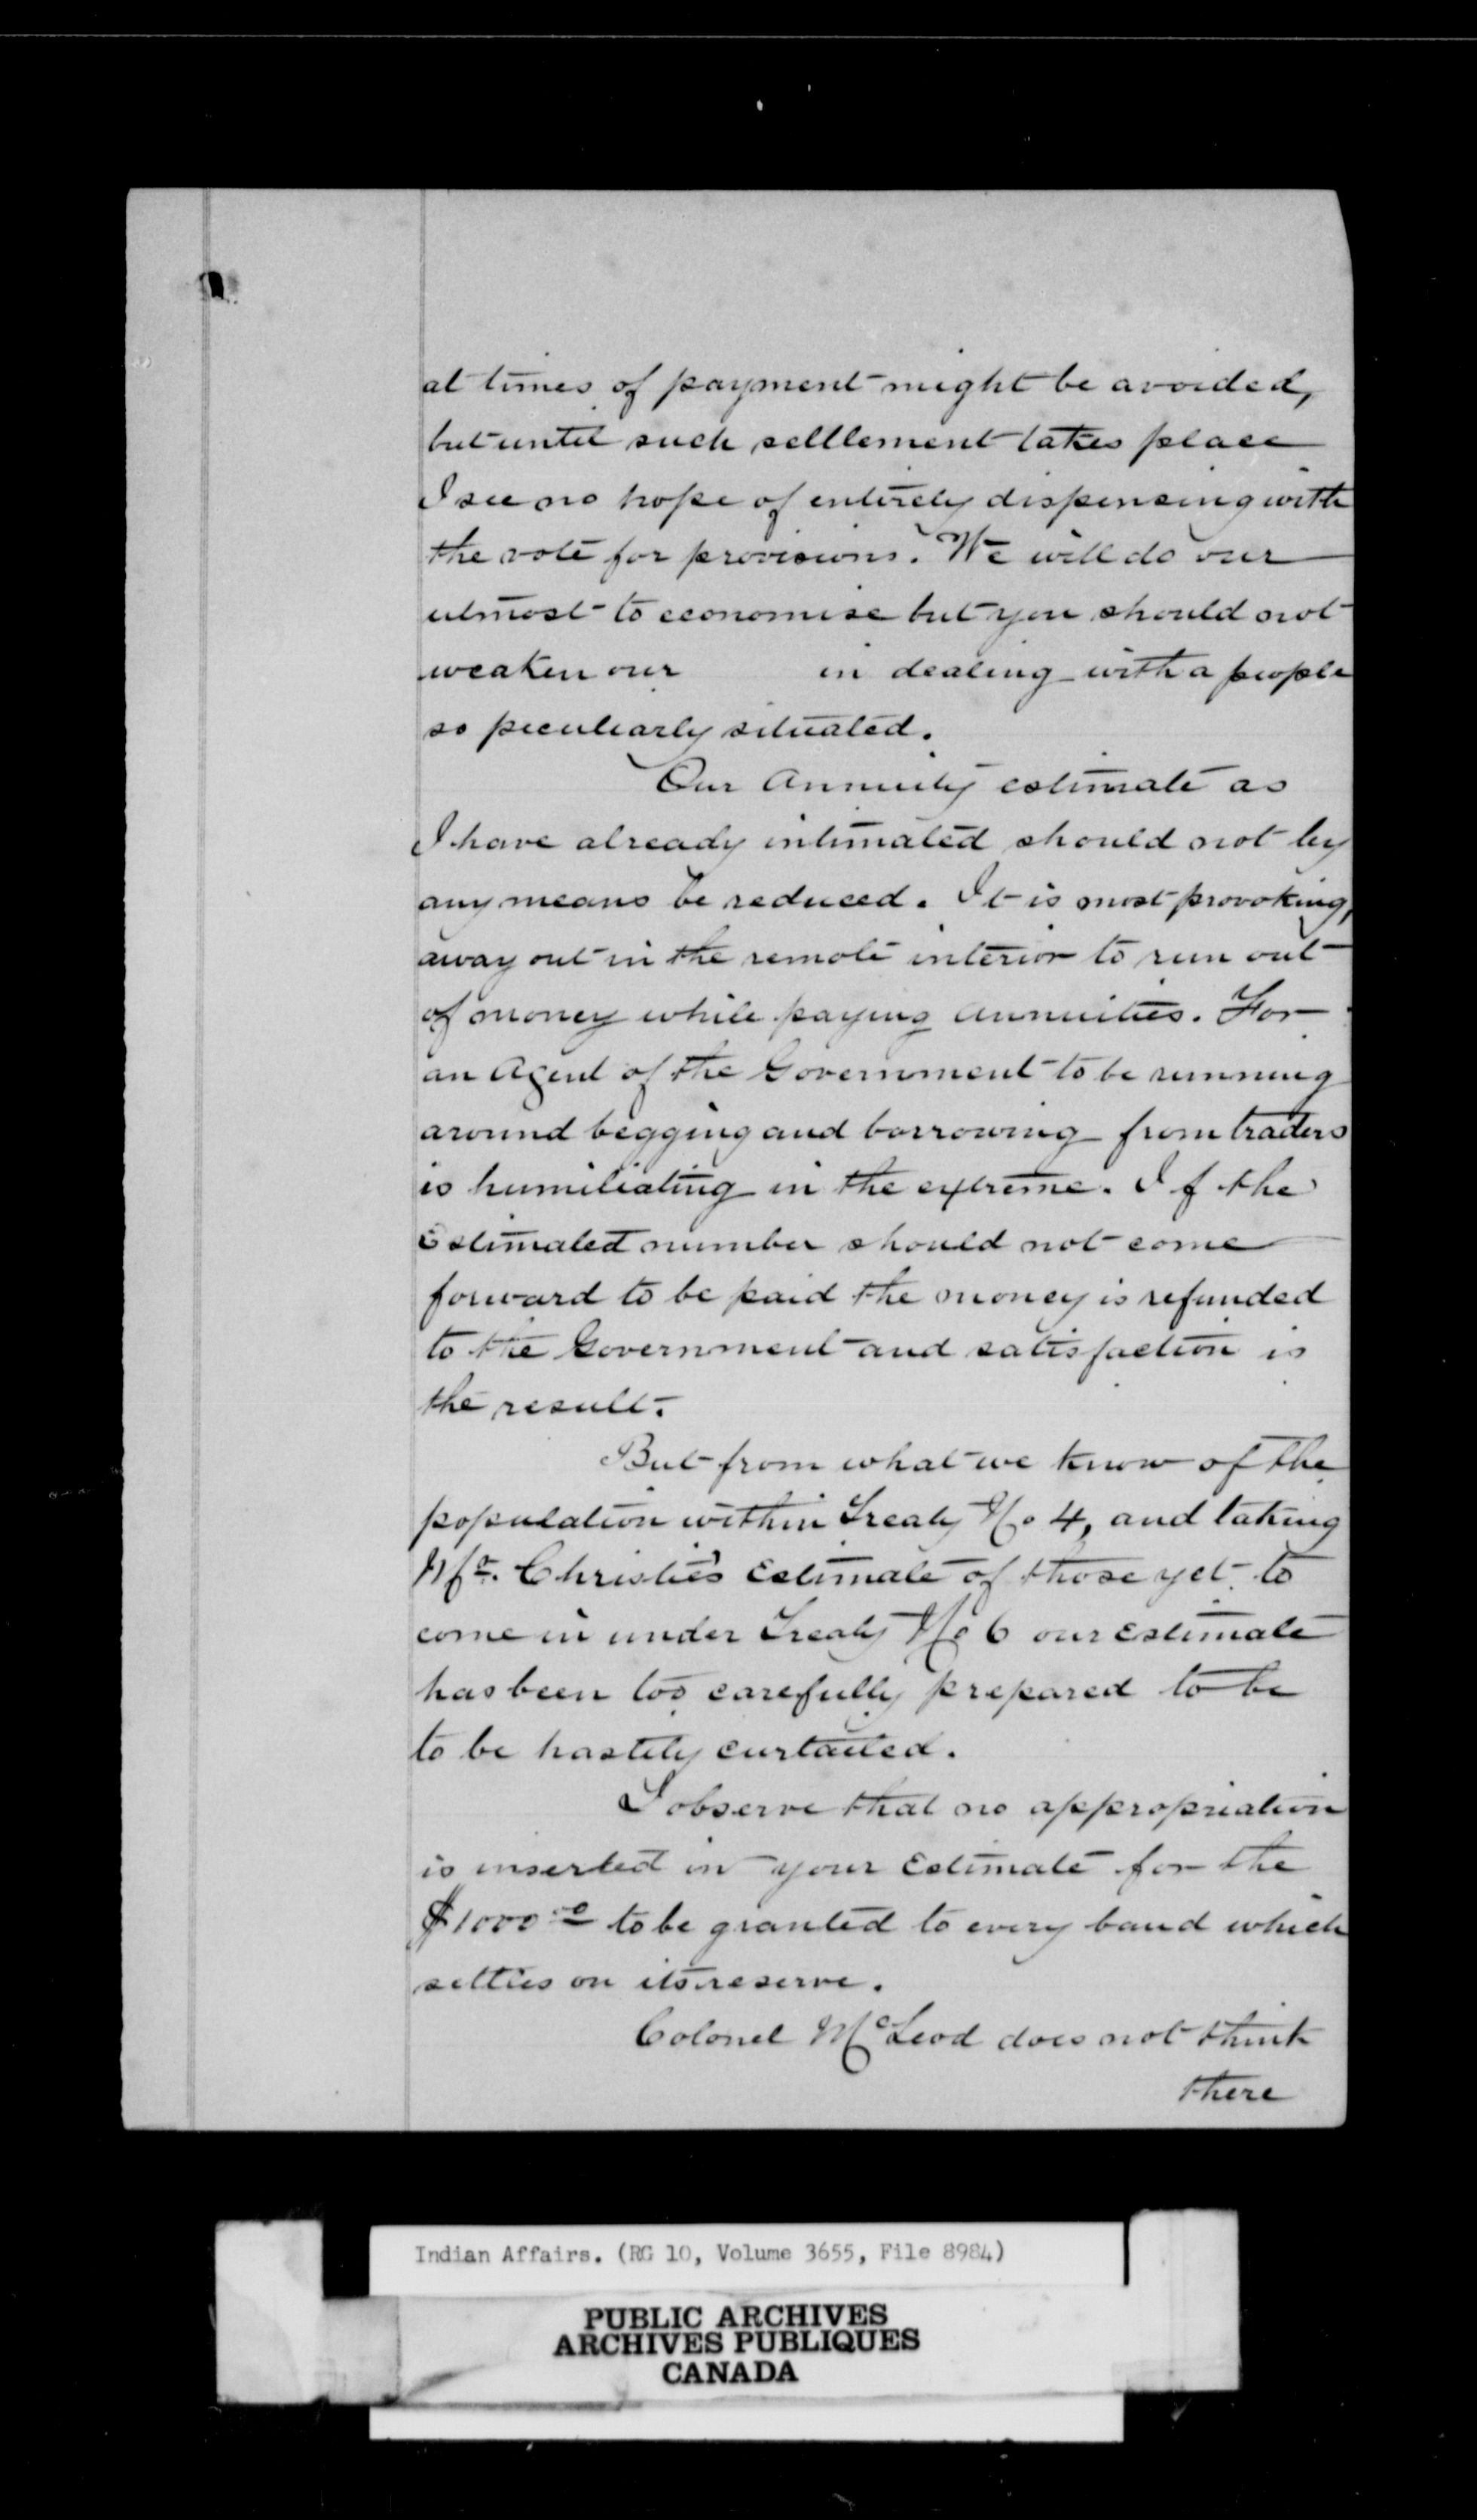 at times of payment might be avoided,
but until such settlement takes place
I see no hope of entirely dispensing with
the vote for provisions. We will do our
utmost to economise but you should not
weaken our in dealing with a people
so peculiarly situated.
Our Annuity estimate as
I have already intimated should not by
any means be reduced. It is most provoking,
away out in the remote interior to run out
of money while paying Annuities. For
an Agent of the Government to be running
around begging and borrowing from traders
is humiliating in the extreme. If the
Estimated number should not come
forward to be paid the money is refunded
to the Government and satisfaction is
the result.
But from what we know of the
population within Treaty No 4, and taking
Mr. Christie's Estimate of those yet to
come in under Treaty No 6 our Estimate
has been too carefully prepared to be
to be hastily curtailed.
I observe that no appropriation
is inserted in your Estimate for the
$1000.00 to be granted to every band which
settles on its reserve.
Colonel McLeod does not think
there
Indian Affairs. (RG 10, Volume 3655, File 8984)
PUBLIC ARCHIVES
ARCHIVES PUBLIQUES
CANADA